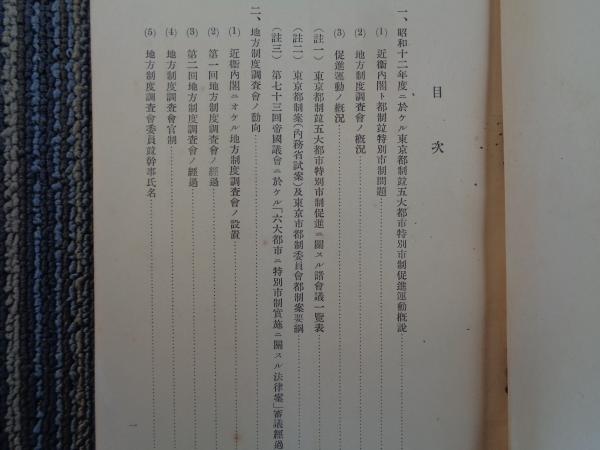 目次
一、昭和十二年度ニ於ケル東京都制竝五大都市特別市制促進運動槪說
(1) 近衞內閣ト都制竝特別市制問題
(2) 地方制度調査會ノ槪況
(3) 促進運動ノ槪況
(註一) 東京都制竝五大都市特別市制促進ニ關スル諸會議一覽表
(註二) 東京都制案(內務省試案)及東京市都制委員會都制案要綱
(註三) 第七十三回帝國議會ニ於ケル「六大都市ニ特別市制實施ニ關スル法律案」審議經過
二、地方制度調査會ノ動向
(1) 近衞內閣ニオケル地方制度調査會ノ設置
(2) 第一回地方制度調査會ノ經過
(3) 第二回地方制度調査會ノ經過
(4) 地方制度調査會官制
(5) 地方制度調査會委員竝幹事氏名
一